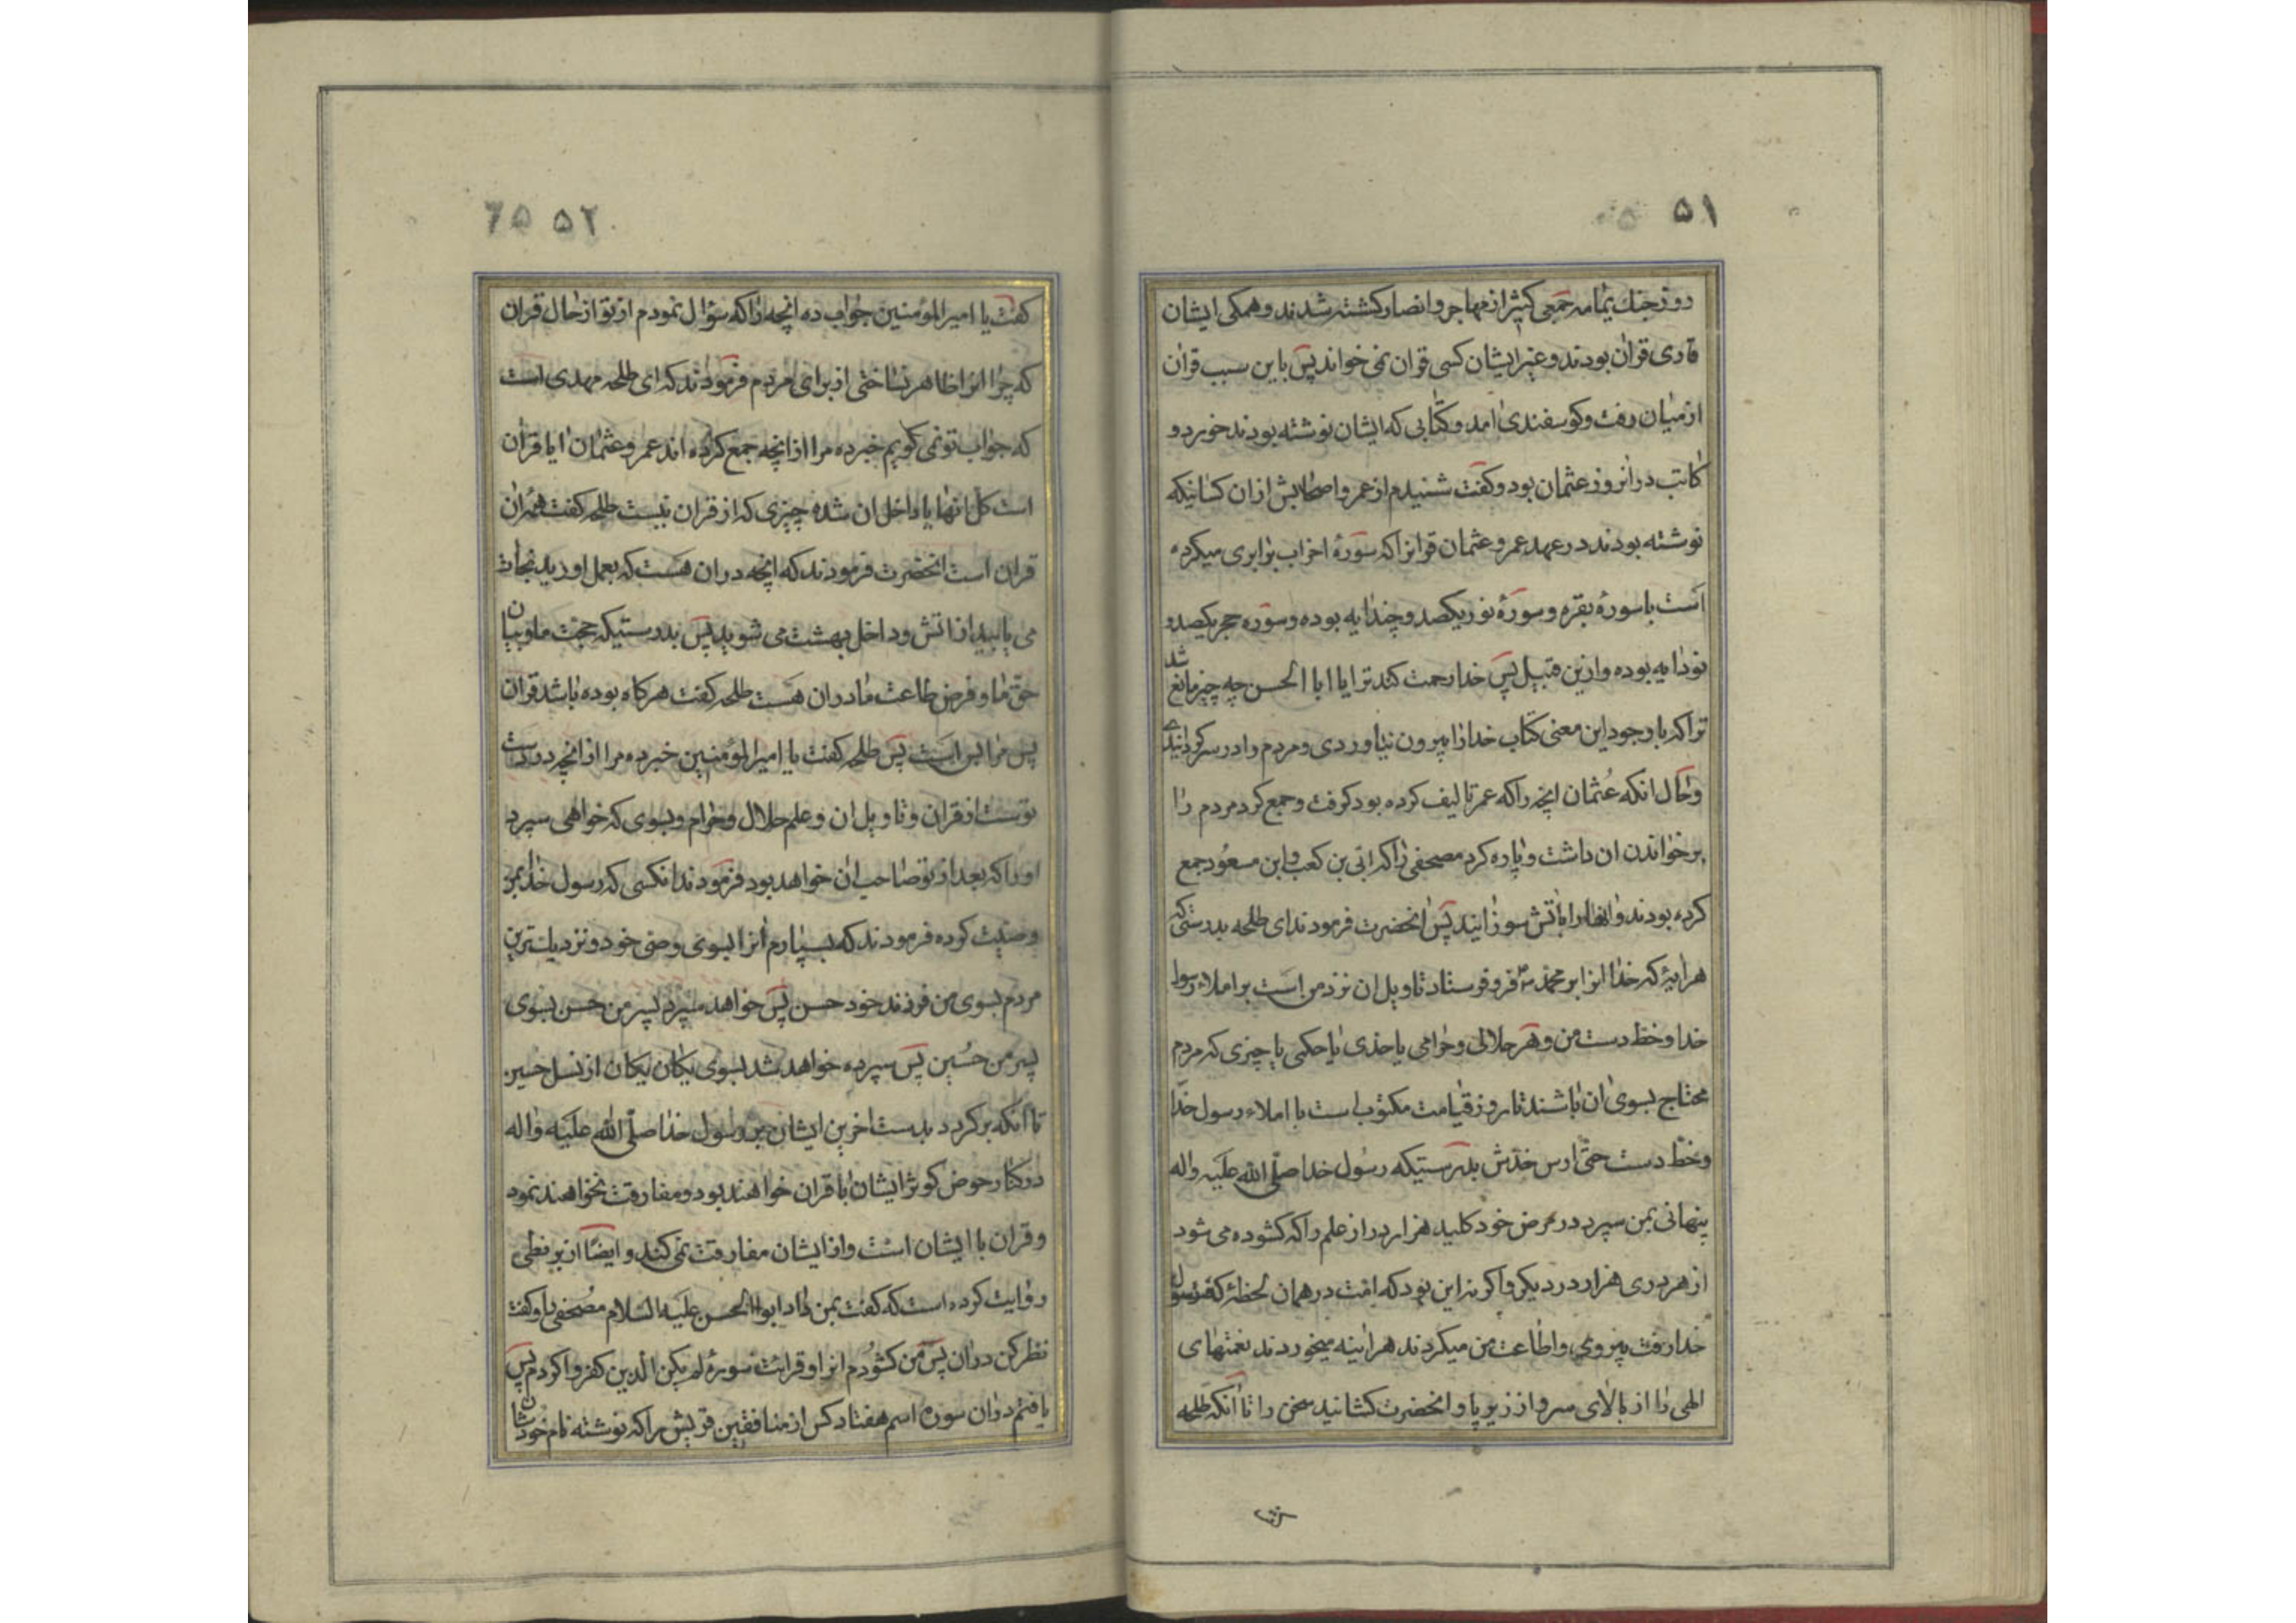 ۵۱
روز جنك یمامه جمعی کثیر از مهاجر و انصار کشته شدند و همکی ایشان
قاری قران بودند و غیر ایشان کسی قران نمی خواند پس باین سبب قران
از میان رفت و کوسفندی امد و کتابی که ایشان نوشته بودند خورد و
کاتب در انروز عثمان بود و کفت شنیدم از عمر و اصحابش از ان کسانیکه
نوشته بودند در عهد عمر و عثمان قرانرا که سورۀ احزاب برابری میکرده
است با سورۀ بقره و سورۀ نور یکصد و چند ایه بوده و سوره حجر یکصد و
نود ایه بوده و ازین قبیل پس خدا رحمت کند ترا یا ابا الحسن چه چیز مانع شد
ترا که با وجود این معنی کتاب خدا را بیرون نیاوردی و مردم را در سر کردانیدی
و حال انکه عثمان انچه را که عمر تالیف کرده بود کرفت و جمع کرد مردم را
بر خواندن ان داشت و پاره کرد مصحفی را که ابی بن کعب و ابن مسعود جمع
کرده بودند و انها را باتش سوزانید پس انحضرت فرمودند ای طلحه بدرستی که
هر ایۀ که خدا انرا بر محمد ص فرو فرستاد تاویل ان نزد من است بر املاء رسول
خدا و خط دست من و هر حلالی و حرامی یا حدی یا حکمی یا چیزی که مردم
محتاج بسوی ان باشند تا روز قیامت مکتوب است با املاء رسول خدا
و خط دست حتی ارش خدش بدرستیکه رسول خدا صلی الله علیه و اله
پنهانی بمن سپرد در مرض خود کلید هزار در از علم را که کشوده می شود
از هر دری هزار در دیکر و اکر نه این بود که امت در همان لحظۀ که رسول
خدا رفت پیروی و اطاعت من میکردند هراینه میخوردند نعمتهای
الهی را از بالای سر و از زیر پا و انحضرت کشانید سخن را تا انکه طلحه
۵۲ 7۵
کفت یا امیر المؤمنین جواب ده انچه را که سؤال نمودم از تو از حال قران
که چرا انرا ظاهر نساختی از برای مردم فرمودند که ای طلحه مهدی است
که جواب تو نمی کویم خبر ده مرا از انچه جمع کرده اند عمر و عثمان ایا قران
است کل انها یا داخل ان شده چیزی که از قران نیست طلحه کفت همه ان
قران است انحضرت فرمودند که انچه در ان هست که بعمل اورید نجات
می یابید از اتش و داخل بهشت می شوید پس بدرستیکه حجت ما و بیان
حق ما و فرض طاعت ما در ان هست طلحه کفت هرکاه بوده باشد قران
پس مرا بس است پس طلحه کفت یا امیر المؤمنین خبر ده مرا از انچه در دست
توست از قران و تاویل ان و علم حلال و حرام و بسوی که خواهی سپرد
او را که بعد از تو صاحب ان خواهد بود فرمودند انکسی که رسول خدا بمن
وصیت کرده فرمودند که بسپارم انرا بسوی وصی خود و نزدیك ترین
مردم بسوی من فرزند خود حسن پس خواهد سپرد پسر من حسن بسوی
پسر من حسین پس سپرده خواهد شد بسوی یکان یکان از نسل حسین
تا انکه بر کردد بدست اخرین ایشان بر رسول خدا صلی الله علیه و اله
در کنار حوض کوثر ایشان با قران خواهند بود و مفارقت نخواهند نمود
و قران با ایشان است و از ایشان مفارقت نمی کند و ایضا از بزنطی
روایت کرده است که کفت بمن داد ابو الحسن علیه السلام مصحفی را و کفت
نظر کن در ان پس من کشودم انرا و قرائت سورۀ لم یکن الذین کفروا کردم پس
یافتم در ان سوره اسم هفتاد کس از منافقین قریش را که نوشته نام خودشان